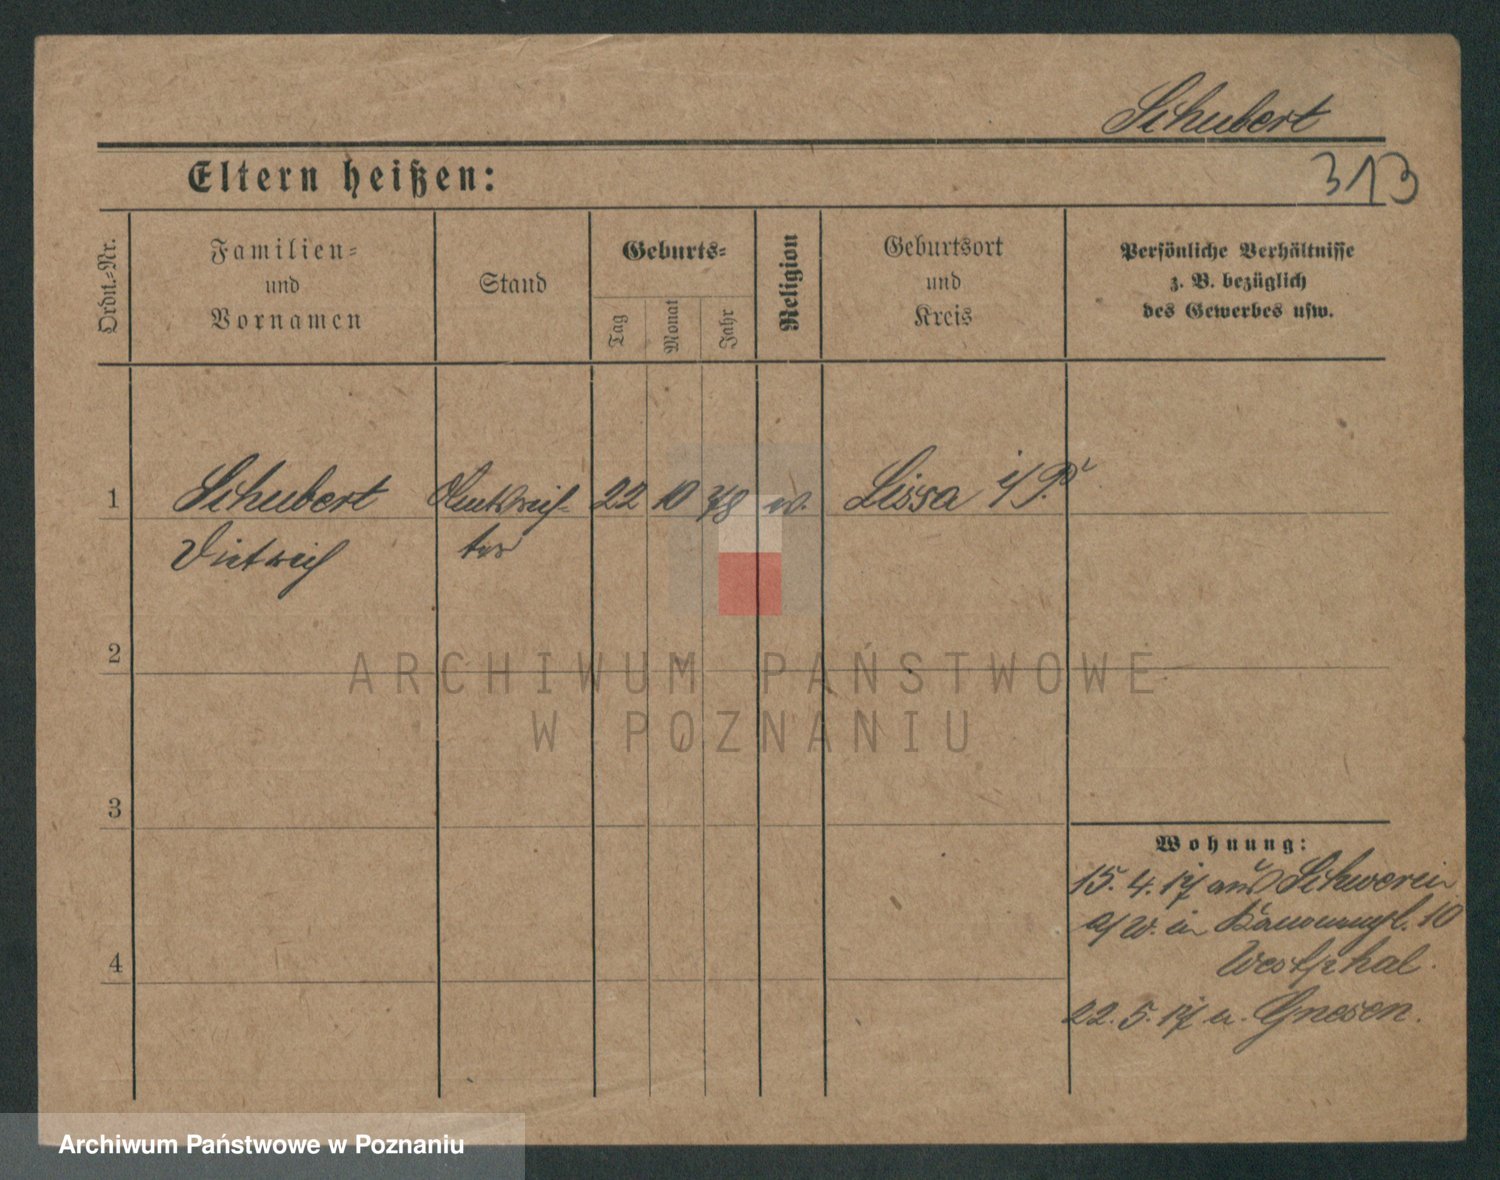 Schubert
313
Eltern heißen:
Ordn.-Nr.
Familien-
und
Vornamen
Stand
Geburts-
Tag
Monat
Jahr
Religion
Geburtsort
und
Kreis
Persönliche Verhältnisse
z. B. bezüglich
des Gewerbes usw.
1
Schubert
Dietrich
Amtsrich-
ter
22
10
78
ev.
Lissa i/P.
2
3
4
Wohnung:
15. 4. 17 aus Schwerin
a/W. in 10
Westphal.
22. 5. 17 n. Gnesen.
ARCHIWUM PAŃSTWOWE
W POZNANIU
Archiwum Państwowe w Poznaniu